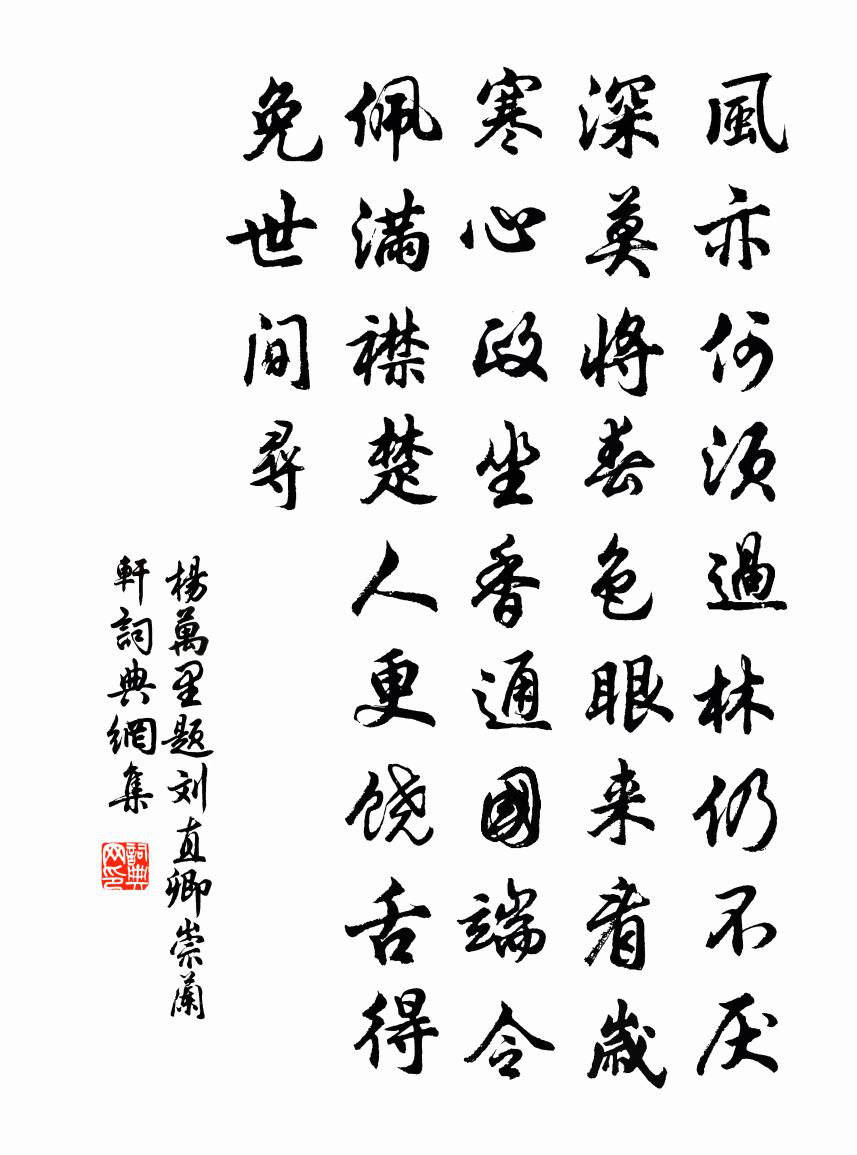 風亦何須過林仍不厌
深莫將春色眼来看歲
寒心政坐香通國端令
佩滿襟楚人更饶舌得
免世間尋
楊萬里题刘直卿崇蘭
軒詞典網集
詞典
网印